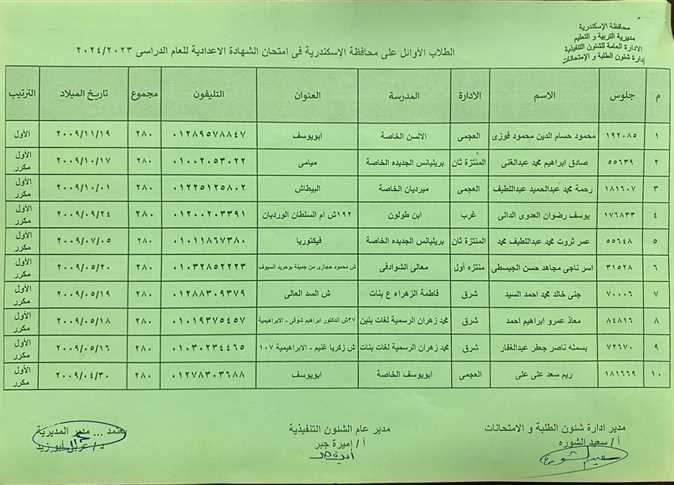 محافظة الإسكندرية
مديرية التربية و التعليم
الادارة العامة للشئون التنفيذية
إدارة شئون الطلبة و الإمتحانات
الطلاب الأوائل على محافظة الإسكندرية فى امتحان الشهادة الاعدادية للعام الدراسى ٢٠٢٤/٢٠٢٣
م جلوس الاسم الادارة المدرسة العنوان التليفون مجموع تاريخ الميلاد الترتيب
١ ١٩٢٠٨٥ محمود حسام الدين محمود فوزى العجمى الالسن الخاصة ابويوسف ٠١٢٨٩٥٧٨٨٤٧ ٢٨٠ ٢٠٠٩/١١/١٩ الأول
٢ ٥٥٦٣٩ صادق ابراهيم محمد عبدالغنى المنتزة ثان بريليانس الجديده الخاصة ميامى ٠١٠٠٢٠٥٣٠٢٢ ٢٨٠ ٢٠٠٩/١٠/١٧ الأول مكرر
٣ ١٨١٦٠٧ رحمة محمد عبدالحميد عبداللطيف العجمى ميرديان الخاصة البيطاش ٠١٢٢٥١٢٥٨٠٢ ٢٨٠ ٢٠٠٩/١٠/٠١ الأول مكرر
٤ ١٧٦٨٣٣ يوسف رضوان العدوى الدالى غرب ابن طولون ١٩٢ش ام السلطان الورديان ٠١٢٠٠٢٠٣٣٩١ ٢٨٠ ٢٠٠٩/٠٩/٢٤ الأول مكرر
٥ ٥٥٦٤٨ عمر ثروت محمد عبداللطيف محمد المنتزة ثان بريليانس الجديدة الخاصة فيكتوريا ٠١٠١١٨٦٧٣٨٠ ٢٨٠ ٢٠٠٩/٠٧/٠٥ الأول مكرر
٦ ٣١٥٢٨ اسر ناجى مجاهد حسن الجيسطى منتزه أول معالى الشوادفى ش محمود حجازى من جميلة بوحريد السيوف ٠١٠٣٢٨٥٢٢٢٣ ٢٨٠ ٢٠٠٩/٠٥/٢٠ الأول مكرر
٧ ٧٠٠٠٦ جنى خالد محمد احمد السيد شرق فاطمة الزهراء ع بنات ش السد العالى ٠١٢٨٨٣٠٩٣٧٩ ٢٨٠ ٢٠٠٩/٠٥/١٩ الأول مكرر
٨ ٨٤٨١٦ معاذ عمرو ابراهيم احمد شرق محمد زهران الرسمية لغات بنين ٢٧ش الدكتور ابراهيم شوقى - الابراهيمية ٠١٠١٩٣٧٥٤٥٧ ٢٨٠ ٢٠٠٩/٠٥/١٨ الأول مكرر
٩ ٧٢٦٧٠ بسمله ناصر جعفر عبدالغفار شرق محمد زهران الرسمية لغات بنات ١٠٧ ش زكريا غنيم - الابراهيمية ٠١٠٣٠٢٣٤٤٦٥ ٢٨٠ ٢٠٠٩/٠٥/١٦ الأول مكرر
١٠ ١٨١٦٦٩ ريم سعد على على العجمى ابويوسف الخاصة ابويوسف ٠١٢٧٨٣٠٣٦٨٨ ٢٨٠ ٢٠٠٩/٠٤/٣٠ الأول مكرر
مدير ادارة شئون الطلبة و الامتحانات
أ/ سعيد الشوره
مدير عام الشئون التنفيذية
أ/ إميرة جبر
يعتمد ... مدير المديرية
د/ عربى أبوزيد